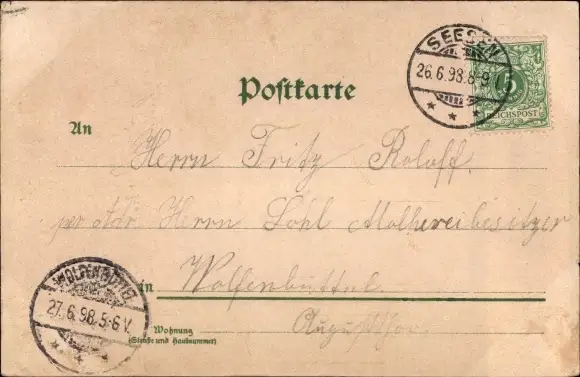 SEESEN
26.6.98.8-9
5
REICHSPOST
Postkarte
An
Herrn Fritz Roloff
per adr. Herrn Sohl Molkereibesitzer
in Wolfenbüttel
Augustthor
WOLFENBÜTTEL
27.6.98.5-6V.
Wohnung
(Straße und Hausnummer)